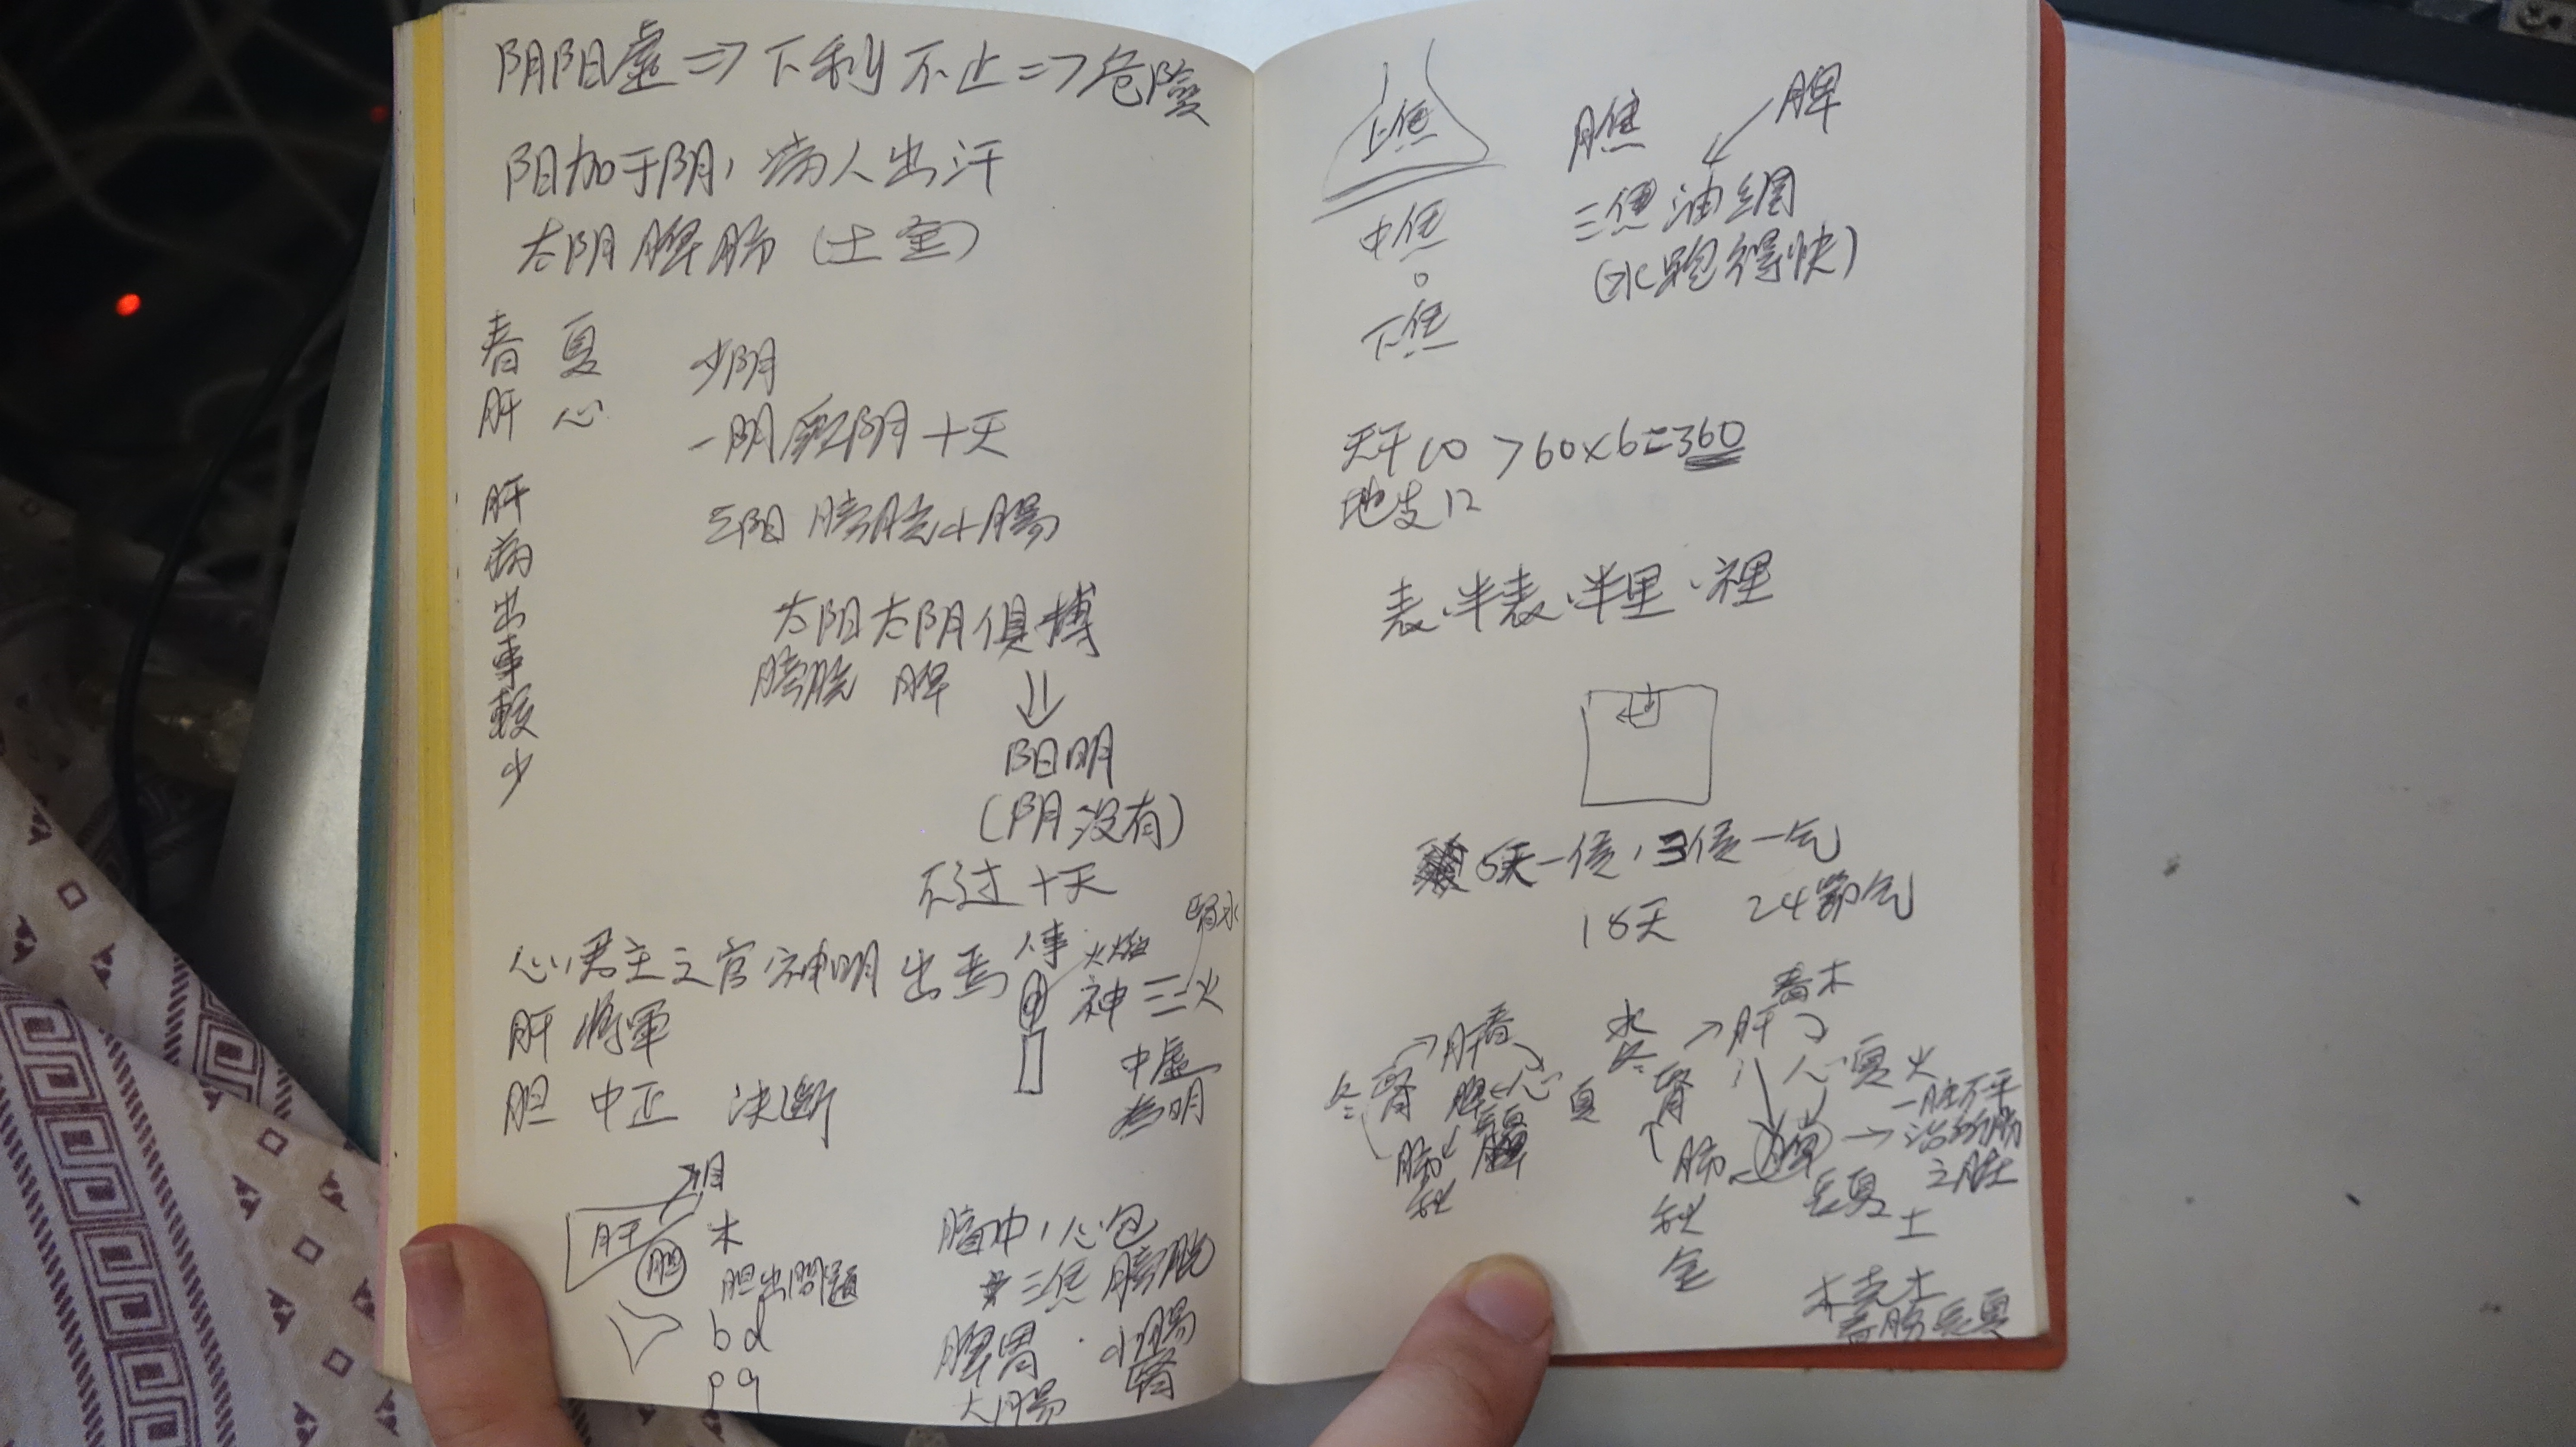 阴阳虚⇒下利不止⇒危險
阳加于阴，病人出汗
太阴脾肺（土金）
春 夏
肝 心
肝病出事較少
少阴
一阴 阴十天
三阳 膀胱小腸
太阳太阴俱搏
膀胱 脾
⇓
阳明
（阴没有）
不过十天
心，君主之官，神明出焉
肝 将軍
胆 中正 决断
人事
火焰
腎水
神 三 火
中虚
为明
目
肝 木
胆
胆出問題
b d
p q
膻中，心包
三焦 膀胱
脾胃 · 小腸
大腸 腎
上焦
中焦
下焦
脾
三焦油網
（水跑得快）
天干10 > 60×6=360
地支12
表·半表·半里·裡
5天一候，3候一气
15天 24節气
肝春
冬腎 脾←心 夏
肺 長夏
秋
水
冬
腎
→肝
春木
心夏火
肺 脾→
秋 長夏
金 土
一脏不平
治所勝
之脏
木克土
春勝長夏